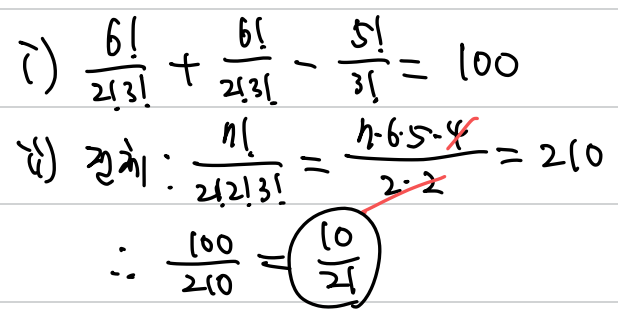 i) 6!/2!3! + 6!/2!3! - 5!/3! = 100
ii) 전체 : n!/2!2!3! = n·6·5·4/2·2 = 210
∴ 100/210 = 10/21